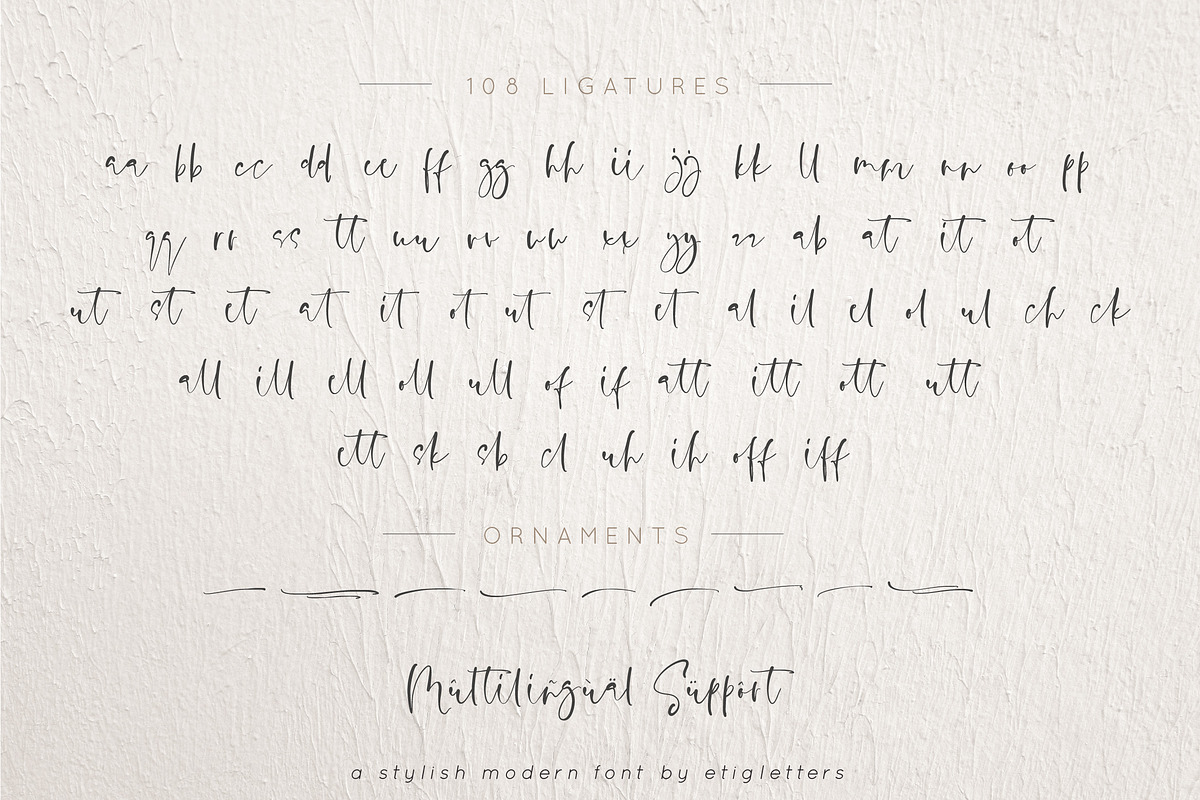 108 LIGATURES
aa bb cc dd ee ff gg hh ii jj kk ll mm nn oo pp
qq rr ss tt uu vv ww xx yy zz ab at it ot
ut st et at it ot ut st et al il el ol ul ch ck
all ill ell oll ull of if att itt ott utt
ett sk sb cl uh ih off iff
ORNAMENTS
Mûltilíñgùäl Süppôrt
a stylish modern font by etigletters